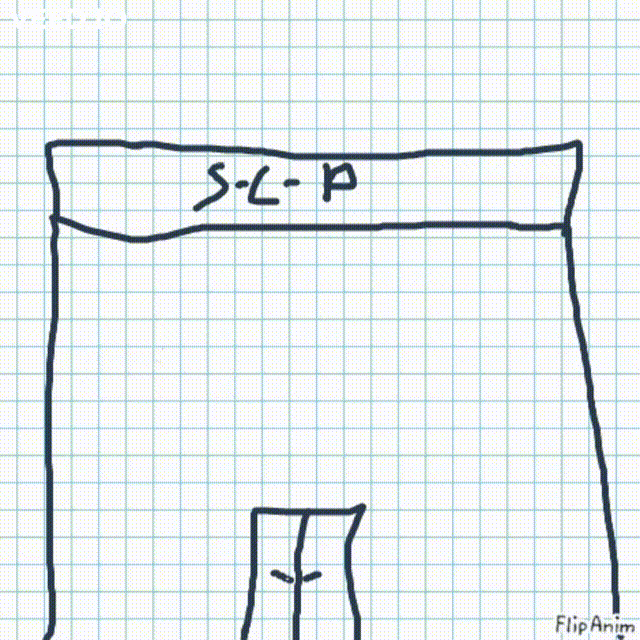 S-L-P
FlipAnim